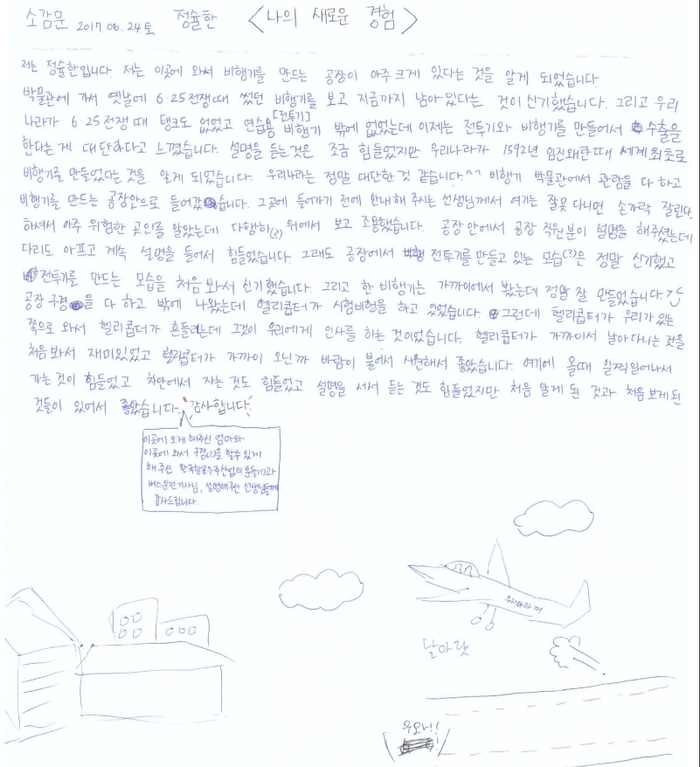 소감문 2017.06.24토 정슬한 <나의 새로운 경험>
저는 정슬한입니다. 저는 이곳에 와서 비행기를 만드는 공장이 아주 크게 있다는 것을 알게 되었습니다.
박물관에 가서 옛날에 6·25전쟁때 썼던 비행기를 보고 지금까지 남아있다는 것이 신기했습니다. 그리고 우리
나라가 6·25전쟁 때 탱크도 없었고 연습용[전투기] 비행기 밖에 없었는데 이제는 전투기와 비행기를 만들어서 수출을
한다는 게 대단하다고 느꼈습니다. 설명을 듣는 것은 조금 힘들었지만 우리나라가 1592년 임진왜란때 세계최초로
비행기를 만들었다는 것을 알게 되었습니다. 우리나라는 정말 대단한 것 같습니다^^ 비행기 박물관에서 관람을 다 하고
비행기를 만드는 공장안으로 들어갔습니다. 그곳에 들어가기 전에 안내해 주시는 선생님께서 여기는 잘못 다니면 손가락 잘린다
하셔서 아주 위험한 곳인줄 알았는데 다행히 위에서 보고 조용했습니다. 공장 안에서 공장 직원분이 설명을 해주셨는데
다리도 아프고 계속 설명을 들어서 힘들었습니다. 그래도 공장에서 전투기를 만들고 있는 모습(?)은 정말 신기했고
전투기를 만드는 모습을 처음 봐서 신기했습니다. 그리고 한 비행기는 가까이에서 봤는데 정말 잘 만들었습니다.
공장 구경을 다 하고 밖에 나왔는데 헬리콥터가 시험비행을 하고 있었습니다. 그런데 헬리콥터가 우리가 있는
쪽으로 와서 헬리콥터가 흔들리는데 그것이 우리에게 인사를 하는 것이었습니다. 헬리콥터가 가까이서 날아다니는 것을
처음 봐서 재미있었고 헬리콥터가 가까이 오니까 바람이 불어서 시원해서 좋았습니다. 여기에 올때 일찍일어나서
가는 것이 힘들었고 차안에서 자는 것도 힘들었고 설명을 서서 듣는 것도 힘들었지만 처음 알게 된 것과 처음 보게된
것들이 있어서 좋았습니다. 감사합니다.
이곳에 오게 해주신 엄마와
이곳에 와서 구경을 할수 있게
해 주신 한국항공우주산업의 분들과
버스운전기사님, 설명해주신 선생님들께
감사드립니다.
우리나라꺼
날아랏
우오아!!